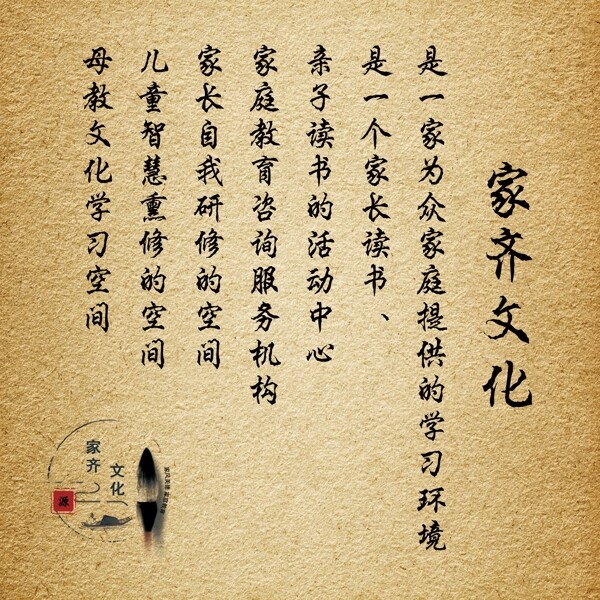 家齐文化
是一家为众家庭提供的学习环境
是一个家长读书、
亲子读书的活动中心
家庭教育咨询服务机构
家长自我研修的空间
儿童智慧熏修的空间
母教文化学习空间
家齐
文化
源